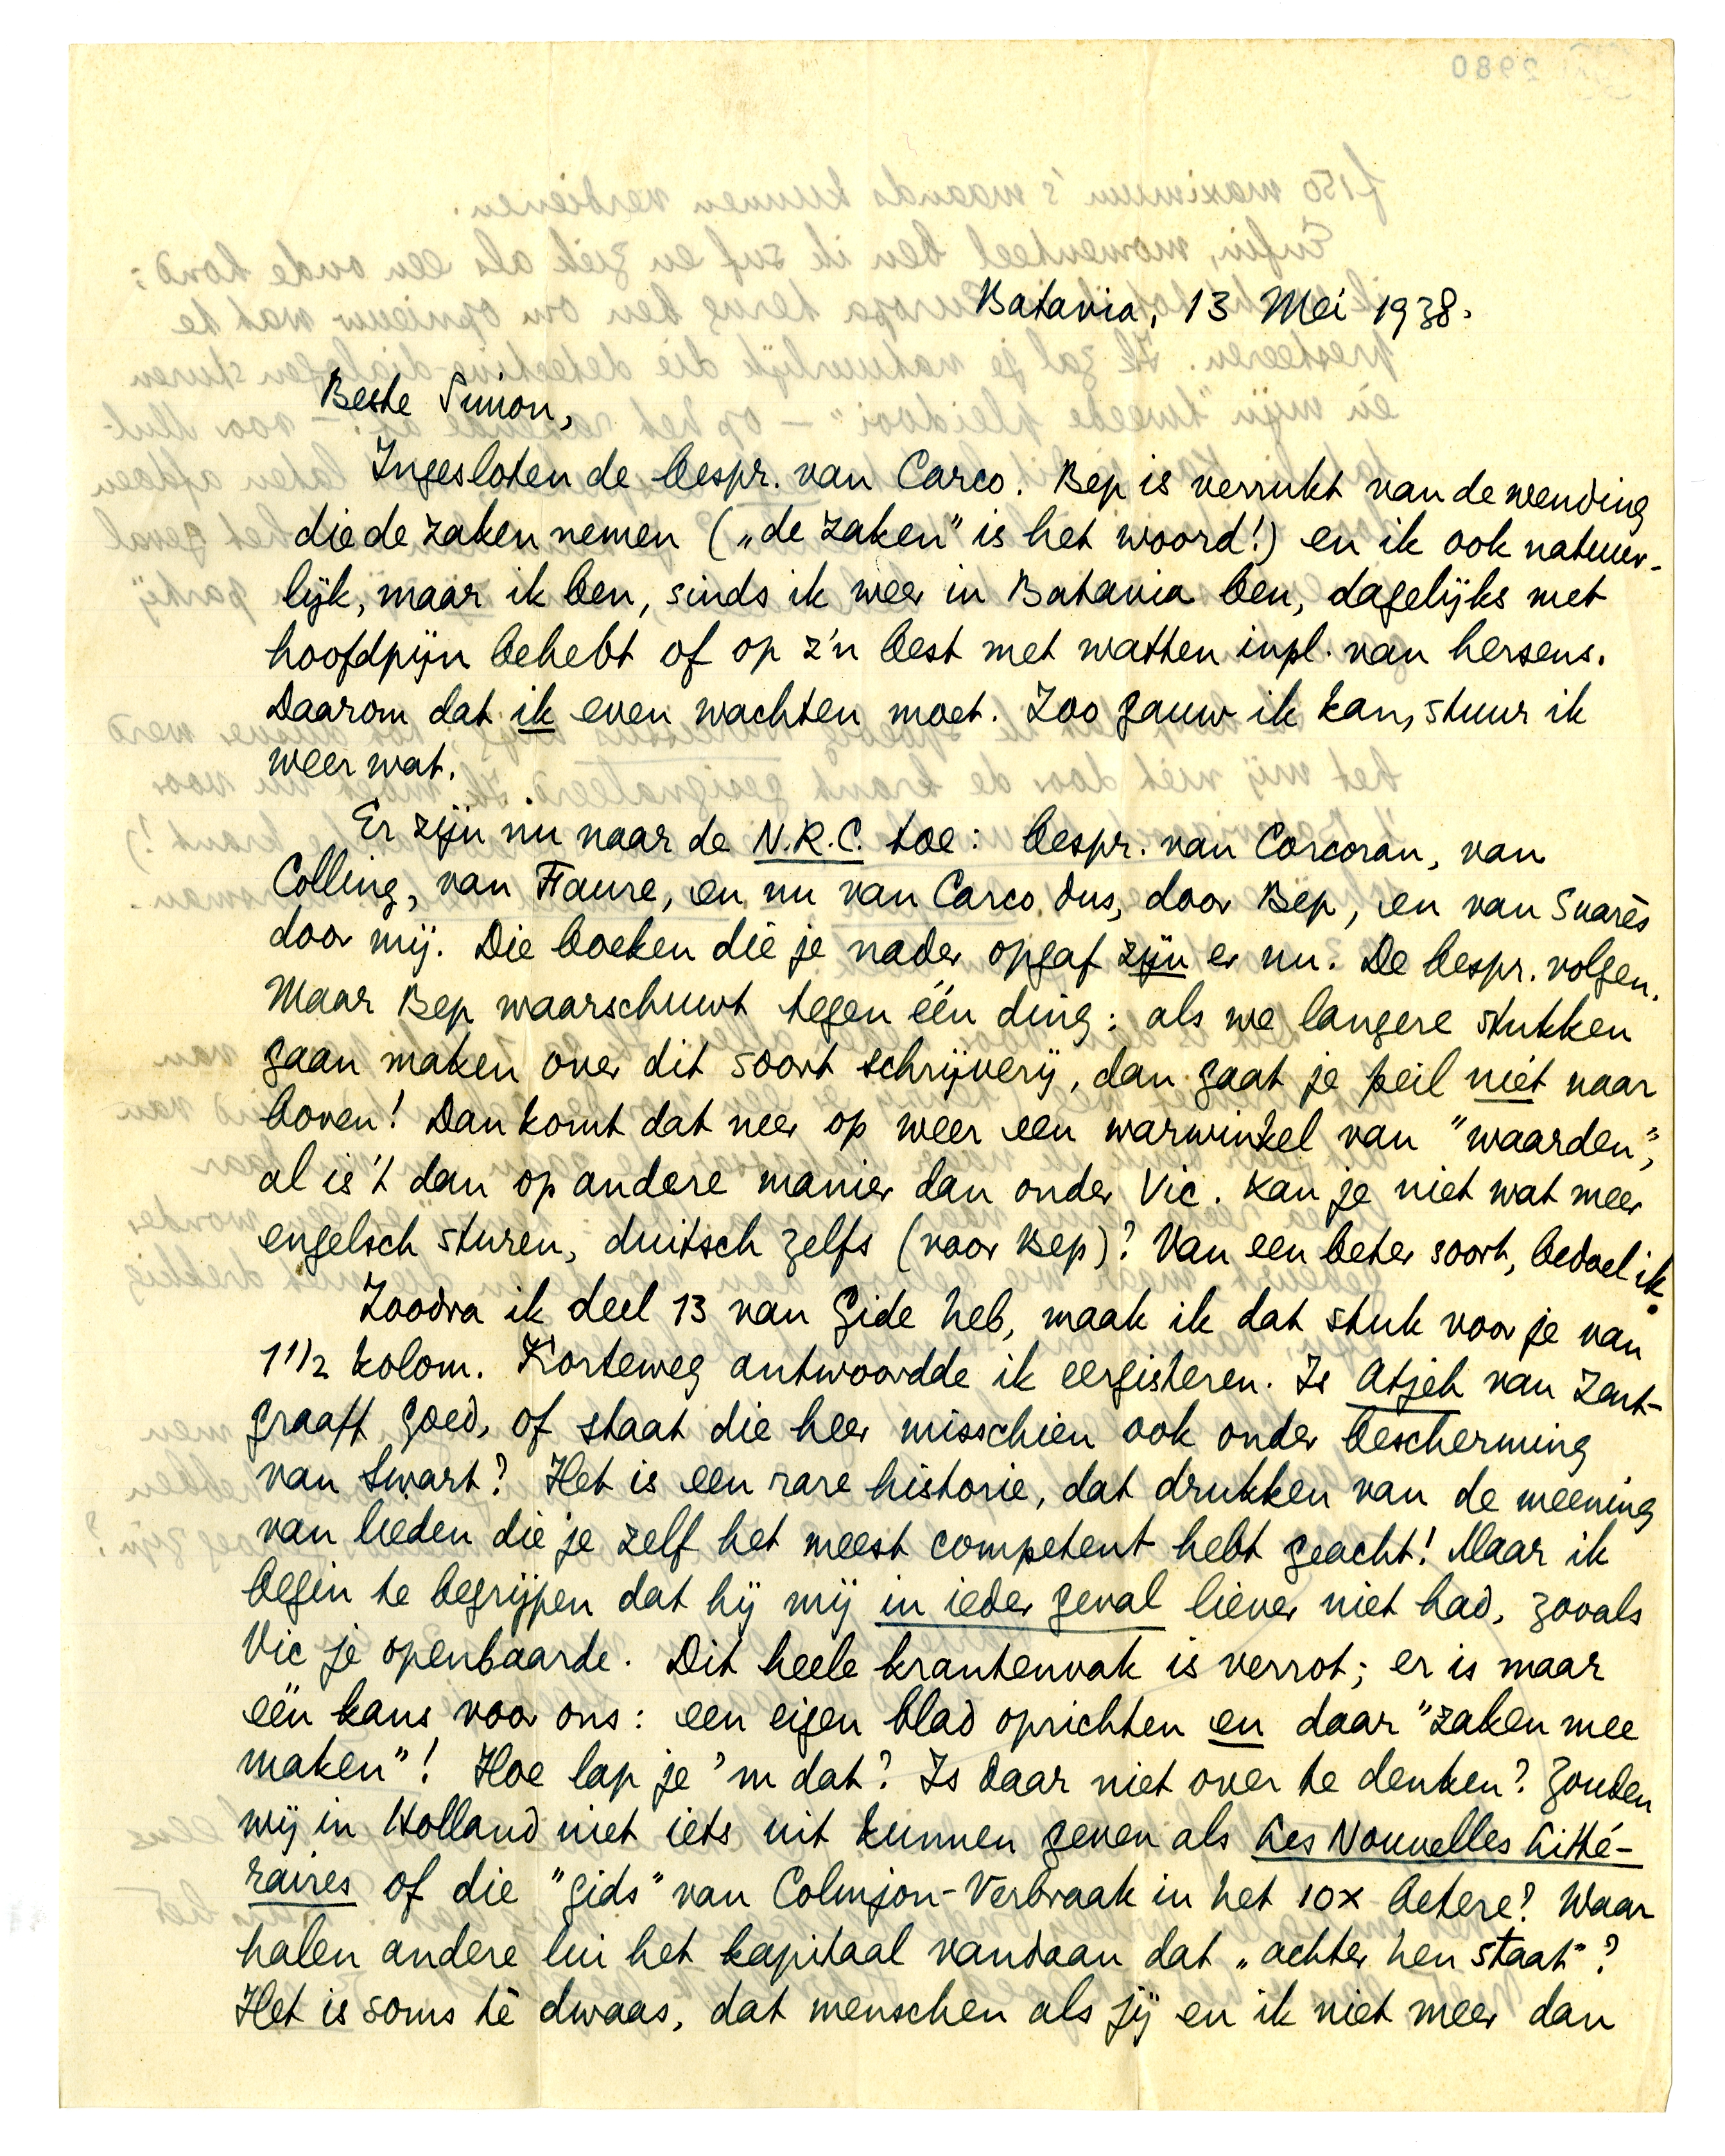 Batavia, 13 Mei 1938.
Beste Simon,
Ingesloten de bespr. van Carco. Bep is verrukt van de wending
die de zaken nemen („de zaken” is het woord!) en ik ook natuur-
lijk, maar ik ben, sinds ik weer in Batavia ben, dagelijks met
hoofdpijn behebt of op z'n best met watten inpl. van hersens.
Daarom dat ik even wachten moet. Zoo gauw ik kan, stuur ik
weer wat.
Er zijn nu naar de N.R.C. toe: bespr. van Corcoran, van
Colling, van Faure, en nu van Carco dus, door Bep, en van Suarès
door mij. Die boeken die je nader opgaf zijn er nu. De bespr. volgen.
Maar Bep waarschuwt tegen één ding: als we langere stukken
gaan maken over dit soort schrijverij, dan gaat je peil niet naar
boven! Dan komt dat neer op weer een warwinkel van "waarden",
al is 't dan op andere manier dan onder Vic. Kan je niet wat meer
engelsch sturen, duitsch zelfs (voor Bep)? Van een beter soort, bedoel ik.
Zoodra ik deel 13 van Gide heb, maak ik dat stuk voor je van
1 1/2 kolom. Korteweg antwoordde ik eergisteren. Is Atjeh van Zent-
graaff goed, of staat die heer misschien ook onder bescherming
van Swart? Het is een rare historie, dat drukken van de meening
van lieden die je zelf het meest competent hebt geacht! Maar ik
begin te begrijpen dat hij mij in ieder geval liever niet had, zooals
Vic je openbaarde. Dit heele krantenvak is verrot; er is maar
één kans voor ons: een eigen blad oprichten en daar "zaken mee
maken"! Hoe lap je 'm dat? Is daar niet over te denken? Zouden
wij in Holland niet iets uit kunnen geven als Les Nouvelles Litté-
raires of die "gids" van Colmjon-Verbraak in het 10x betere? Waar
halen andere lui het kapitaal vandaan dat „achter hen staat"?
Het is soms tè dwaas, dat menschen als jij en ik niet meer dan